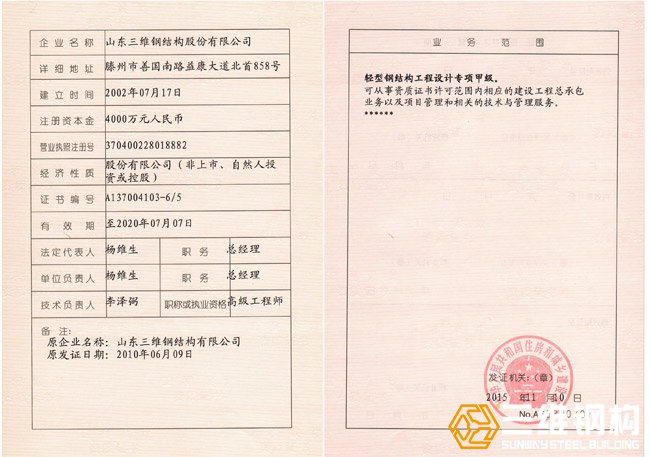 企业名称 山东三维钢结构股份有限公司
详细地址 滕州市善国南路益康大道北首858号
建立时间 2002年07月17日
注册资本金 4000万元人民币
营业执照注册号 370400228018882
经济性质 股份有限公司(非上市、自然人投
资或控股)
证书编号 A137004103-6/5
有效期 至2020年07月07日
法定代表人 杨维生 职务 总经理
单位负责人 杨维生 职务 总经理
技术负责人 李泽弼 职称或执业资格 高级工程师
备注:
原企业名称:山东三维钢结构有限公司
原发证日期:2010年06月09日
业务范围
轻型钢结构工程设计专项甲级。
可从事资质证书许可范围内相应的建设工程总承包
业务以及项目管理和相关的技术与管理服务。
******
发证机关:(章)
2015年11月10日
No.A
三维钢构
SUNWAY STEEL BUILDING